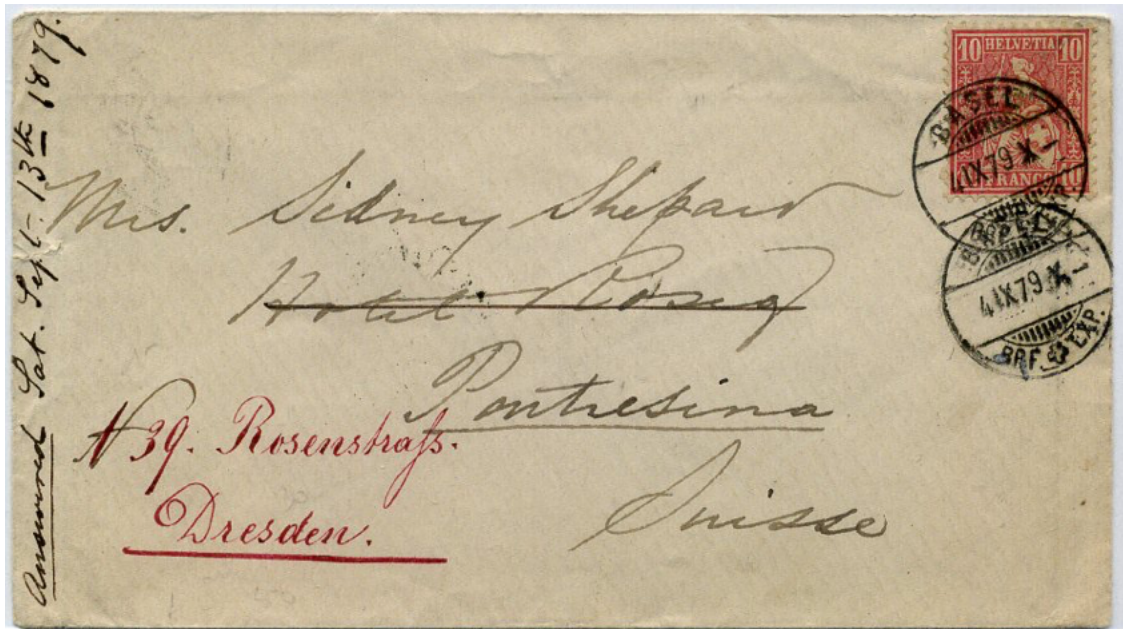 Answered Sat. Sept. 13th 1879.
10 HELVETIA 10
FRANCO 10
BASEL
4 IX 79 X -
BRF. EXP.
BASEL
4 IX 79 X -
BRF. EXP.
Mrs. Sidney Shepard
Hotel Roseg
Pontresina
Suisse
N 39. Rosenstraſs.
Dresden.